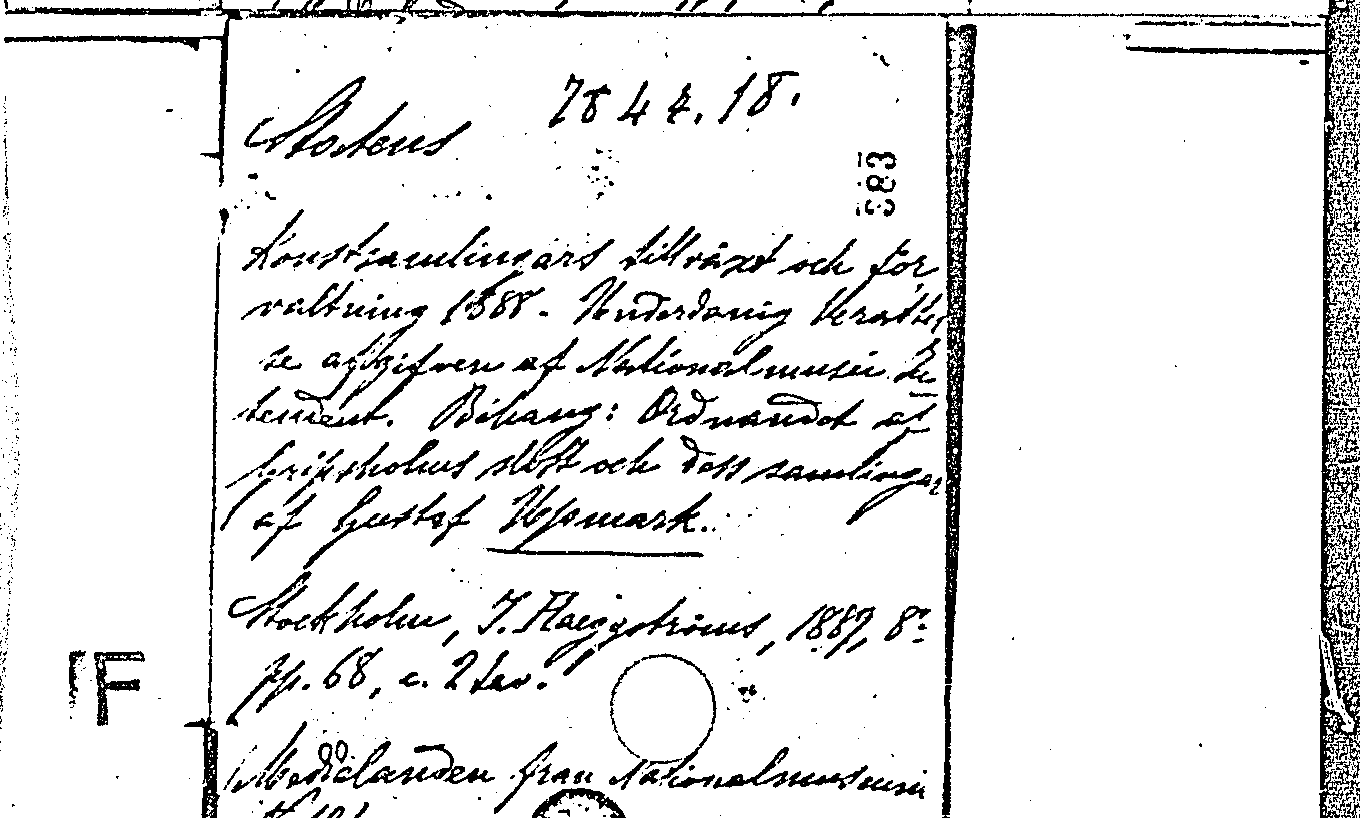 7844.18.
Statens
883
Konstsamlingars tillväxt och för
valtning 1888. Underdånig Berättel
se afgifven af Nationalmusei In
tendent. Bihang: Ordnandet af
Gripsholms slott och dess samlingar
af Gustaf Upmark.
Stockholm, I. Haeggströms, 1889, 8º.
pp. 68, c. 2 tav.
F
Meddelanden från Nationalmuseum